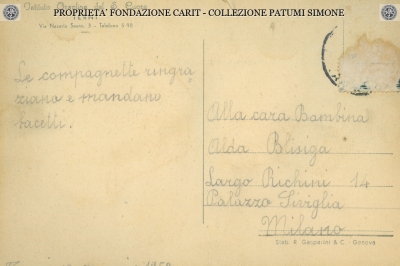 PROPRIETA' FONDAZIONE CARIT - COLLEZIONE PATUMI SIMONE
Istituto del S. Cuore
TERNI
Via Nazario Sauro, 3 - Telefono 5 90
Le compagnette ringra
ziano e mandano
bacetti.
Alla cara Bambina
Alda Blisiga
Largo Richini 14
Palazzo Siviglia
Milano
Stab. R. Gasparini & C. - Genova